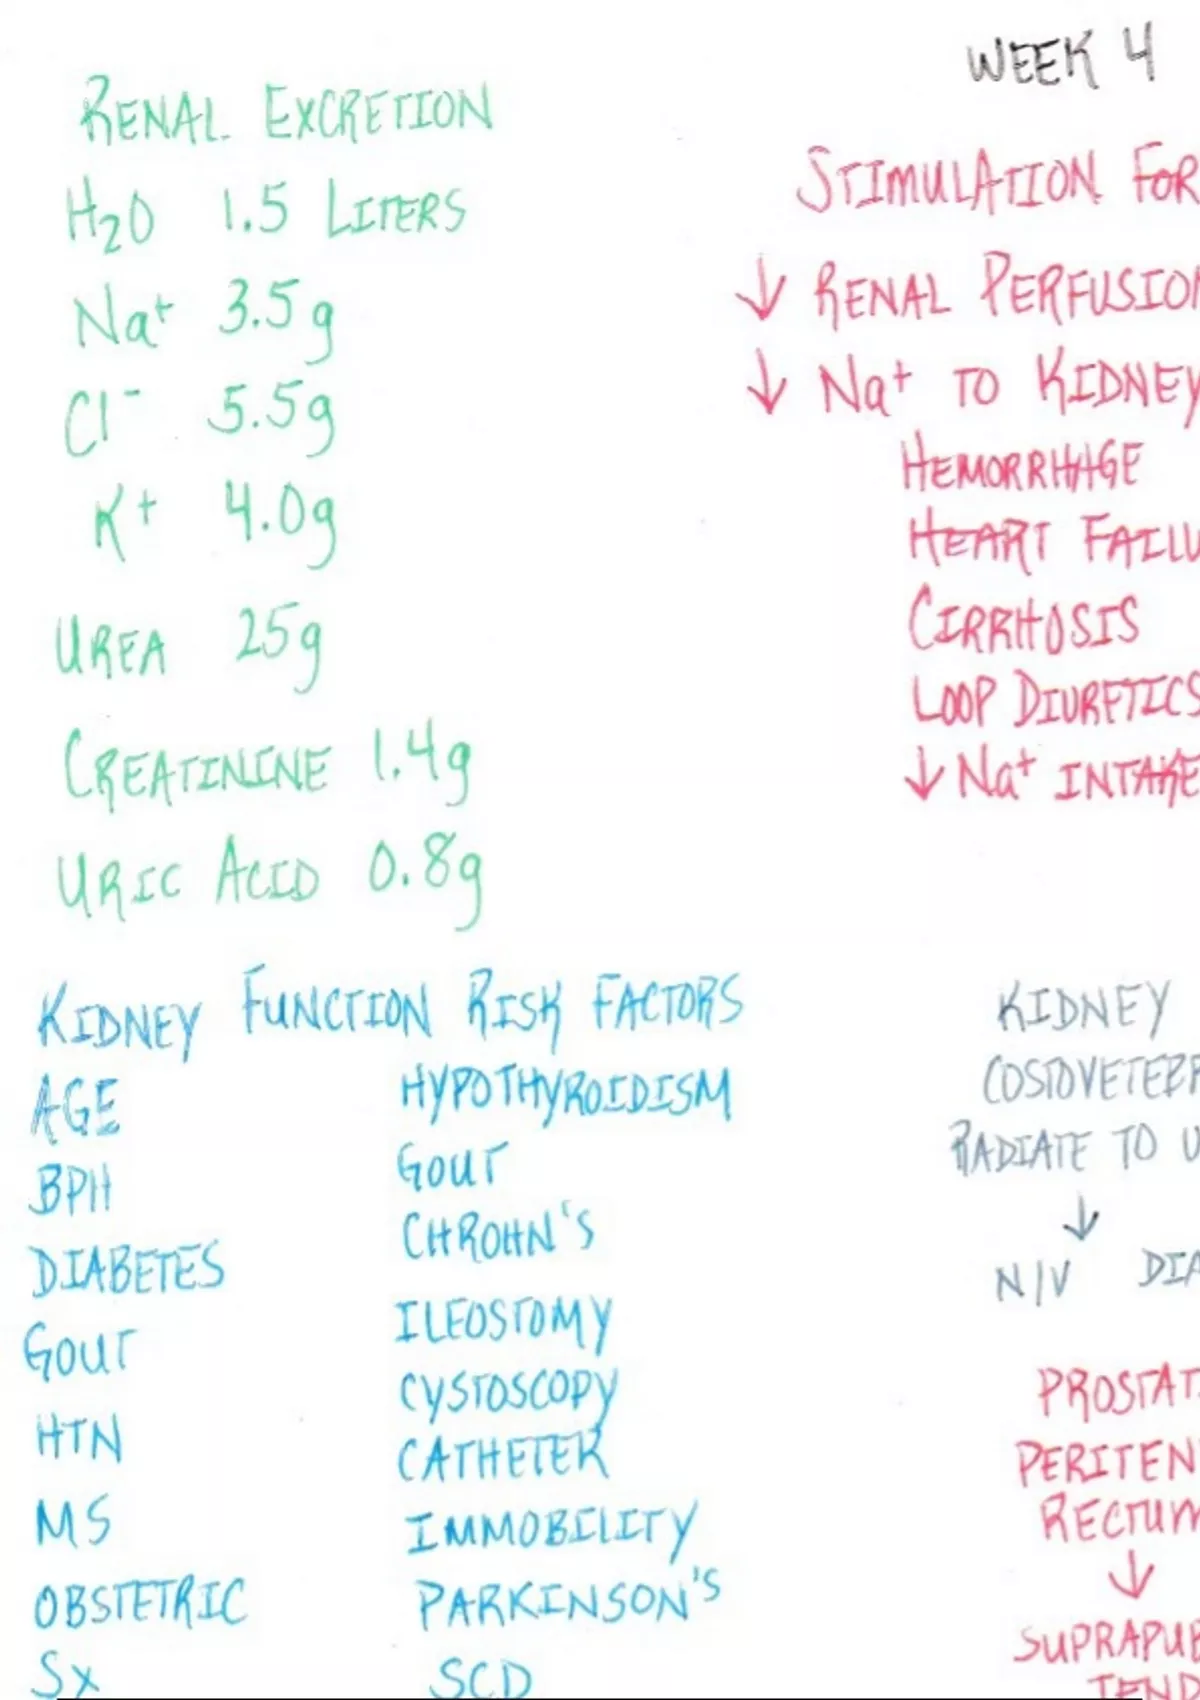 WEEK 4
RENAL EXCRETION
H₂O 1.5 LITERS
Na⁺ 3.5g
Cl⁻ 5.5g
K⁺ 4.0g
UREA 25g
CREATININE 1.4g
URIC ACID 0.8g
STIMULATION FOR
↓ RENAL PERFUSION
↓ Na⁺ TO KIDNEY
HEMORRHAGE
HEART FAILU
CIRRHOSIS
LOOP DIURETICS
↓ Na⁺ INTAKE
KIDNEY FUNCTION RISK FACTORS
AGE
BPH
DIABETES
GOUT
HTN
MS
OBSTETRIC
SX
HYPOTHYROIDISM
GOUT
CHROHN'S
ILEOSTOMY
CYSTOSCOPY
CATHETER
IMMOBILITY
PARKINSON'S
SCD
KIDNEY
RADIATE TO U
↓
N/V DIA
PROSTAT
PERITEN
RECTUM
↓
SUPRAPUB
TEND